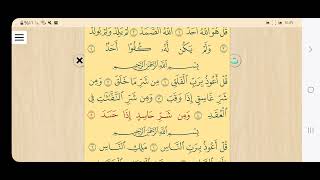 قُلْ هُوَ اللَّهُ أَحَدٌ ۝ اللَّهُ الصَّمَدُ ۝ لَمْ يَلِدْ وَلَمْ يُولَدْ
۝ وَلَمْ يَكُنْ لَهُ كُفُوًا أَحَدٌ ۝
بِسْمِ اللَّهِ الرَّحْمَنِ الرَّحِيمِ
قُلْ أَعُوذُ بِرَبِّ الْفَلَقِ ۝ مِنْ شَرِّ مَا خَلَقَ ۝ وَمِنْ
شَرِّ غَاسِقٍ إِذَا وَقَبَ ۝ وَمِنْ شَرِّ النَّفَّاثَاتِ فِي
الْعُقَدِ ۝ وَمِنْ شَرِّ حَاسِدٍ إِذَا حَسَدَ ۝
بِسْمِ اللَّهِ الرَّحْمَنِ الرَّحِيمِ
قُلْ أَعُوذُ بِرَبِّ النَّاسِ ۝ مَلِكِ النَّاسِ ۝